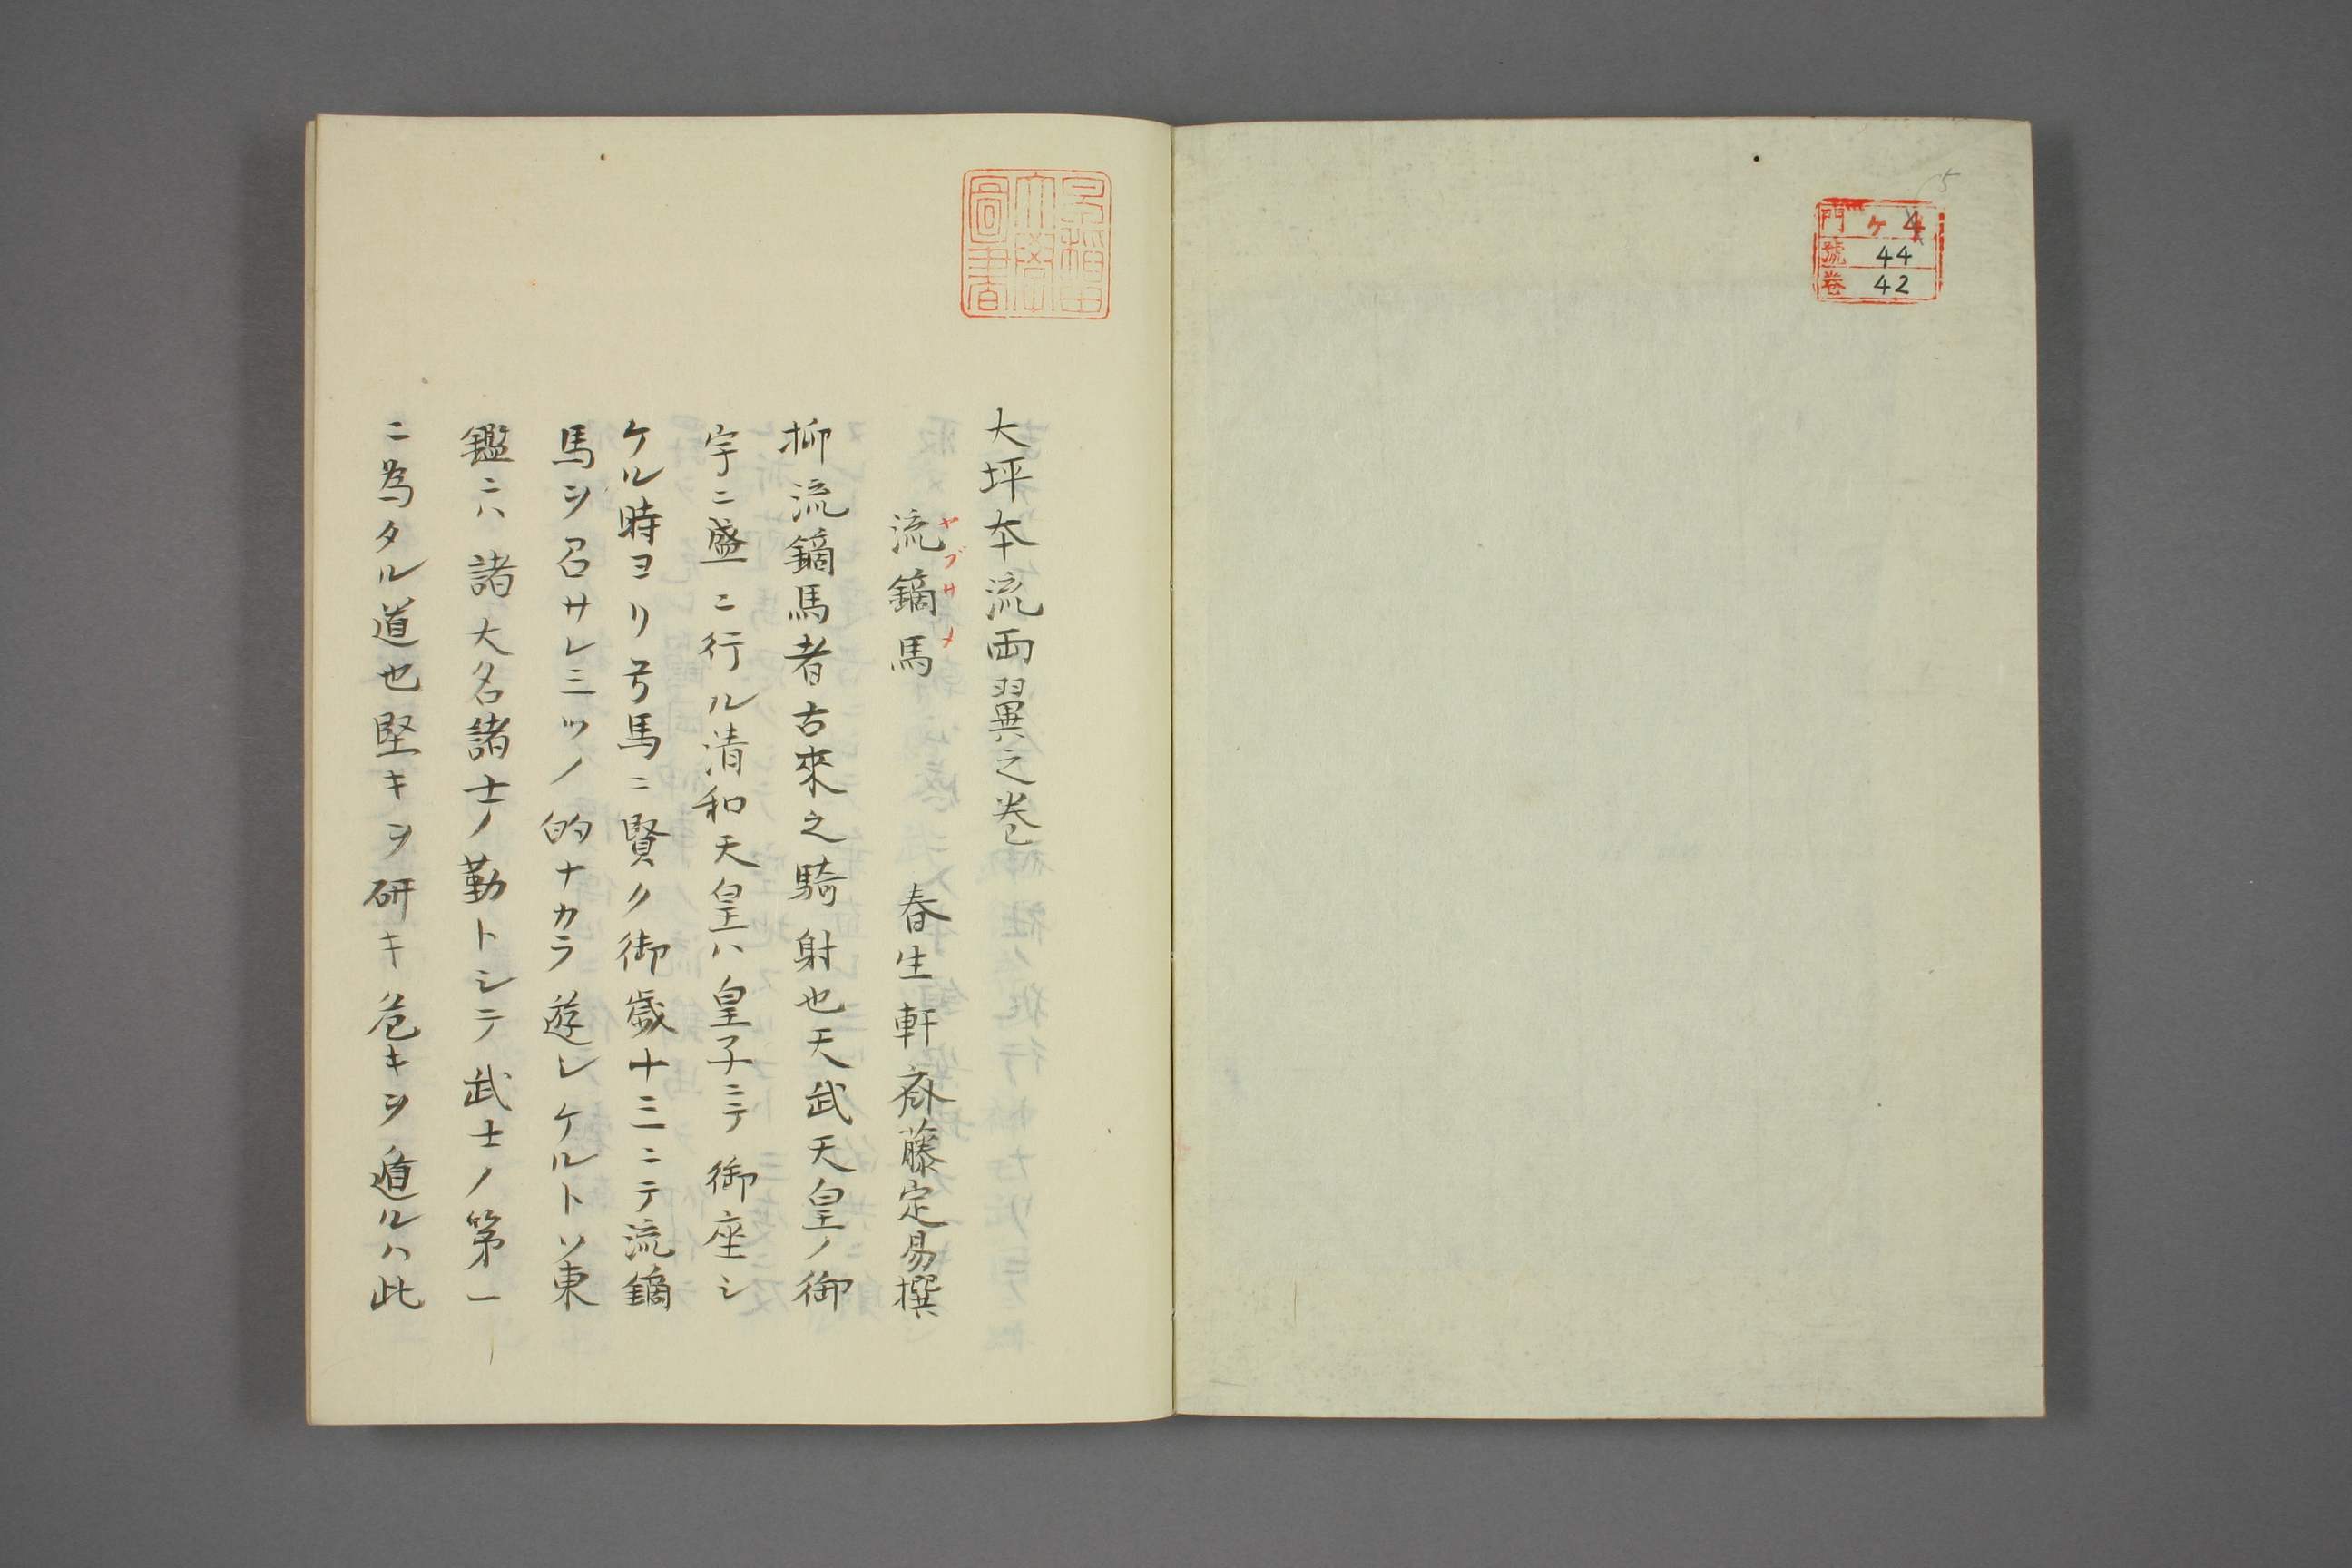 5
門 ケ 4
號 44
卷 42
早稲田大學圖書
大坪本流両翼之巻
流鏑馬 春生軒斎藤定易撰
ヤブサメ
抑流鏑馬者古來之騎射也天武天皇ノ御
宇ニ盛ニ行ル清和天皇ハ皇子ニテ御座シ
ケル時ヨリ弓馬ニ賢ク御歳十三ニテ流鏑
馬ヲ召サレ三ツノ的ナカラ遊シケルトソ東
鑑ニハ諸大名諸士ノ勤トシテ武士ノ第一
ニ為タル道也堅キヲ研キ危キヲ遁ルハ此